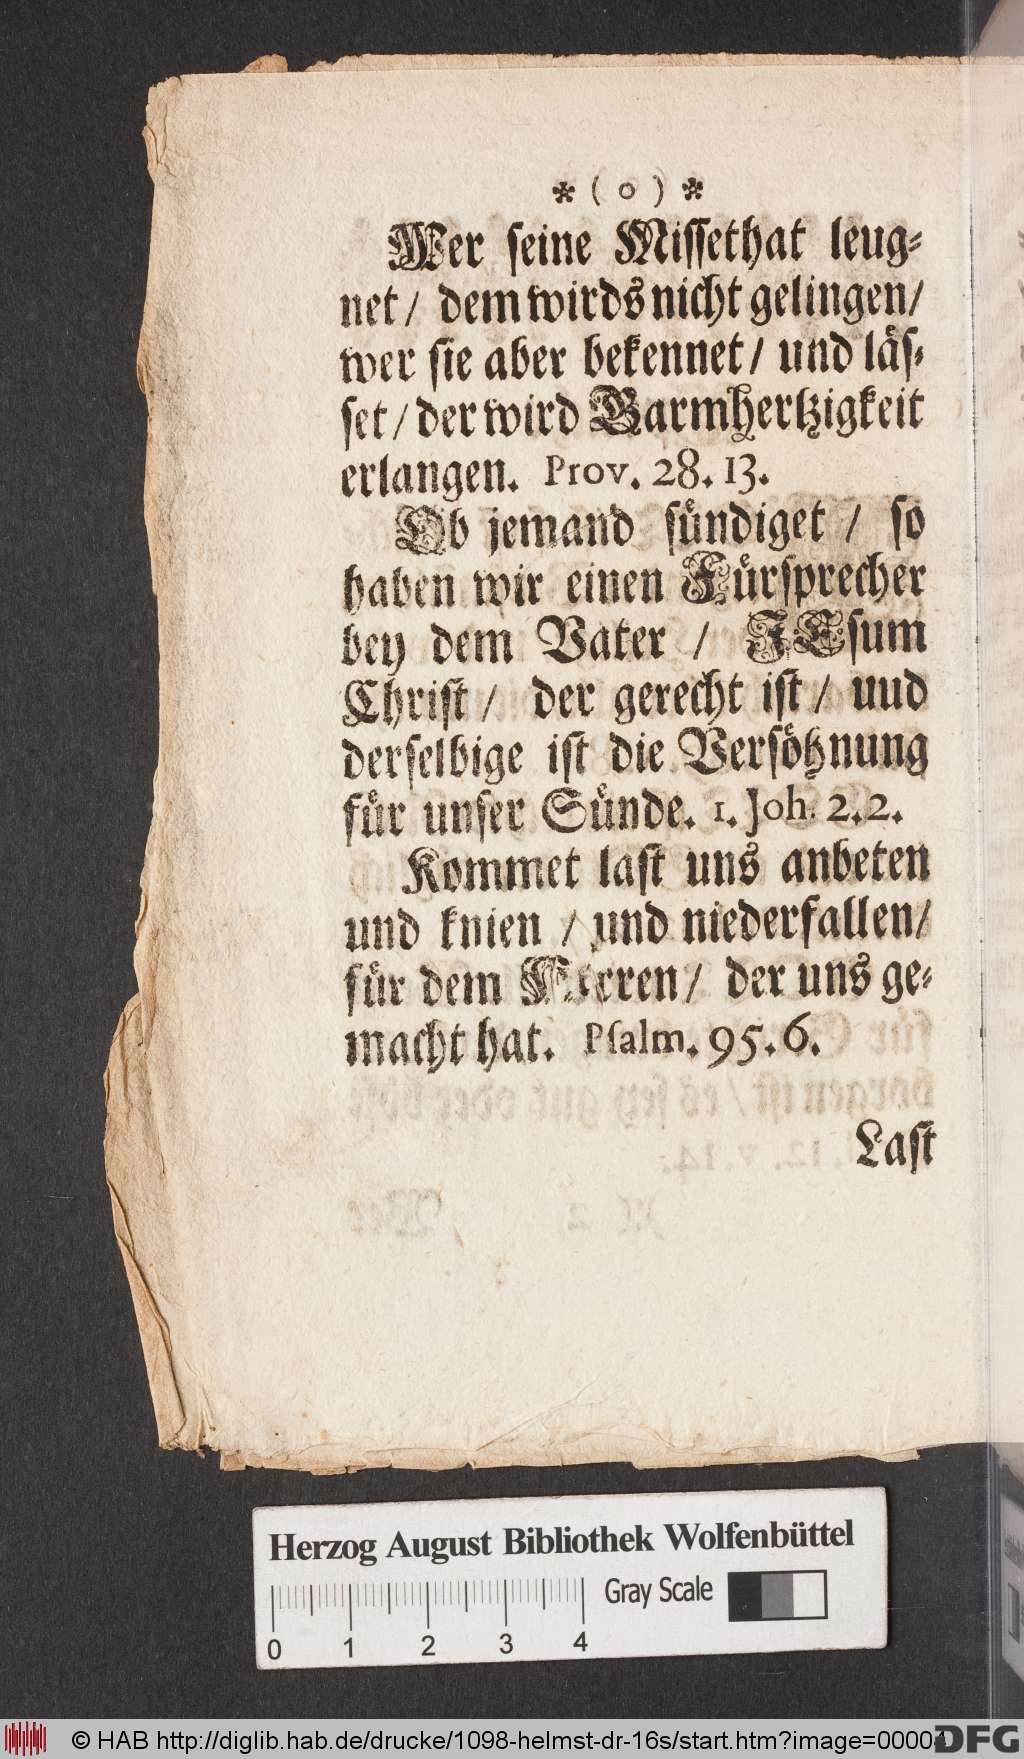 * ( o ) *
Wer seine Missethat leug-
net / dem wirds nicht gelingen /
wer sie aber bekennet / und läs-
set / der wird Barmhertzigkeit
erlangen. Prov. 28. 13.
Ob jemand sündiget / so
haben wir einen Fürsprecher
bey dem Vater / JEsum
Christ / der gerecht ist / uud
derselbige ist die Versöhnung
für unser Sünde. 1. Joh. 2. 2.
Kommet last uns anbeten
und knien / und niederfallen /
für dem HErren / der uns ge-
macht hat. Psalm. 95. 6.
Last
Herzog August Bibliothek Wolfenbüttel
Gray Scale
0 1 2 3 4
© HAB http://diglib.hab.de/drucke/1098-helmst-dr-16s/start.htm?image=00004
DFG